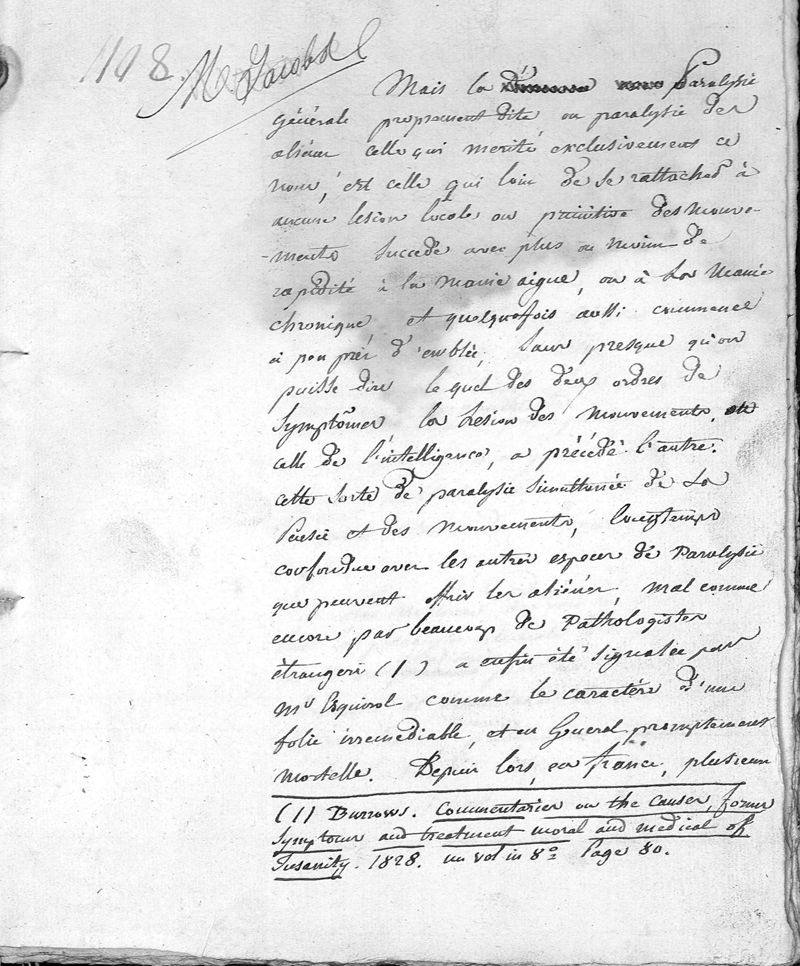 1198. Mr Jacobs
Mais la Paralysie
générale proprement dite ou paralysie des
aliénés celle qui mérite exclusivement ce
nom, est celle qui loin de se rattacher à
aucune lesion locale ou primitive des mouve-
-ments succede avec plus ou moins de
rapidité à la manie aigue, ou à la Manie
chronique et quelquefois aussi commence
à peu près d'emblée, sans presque qu'on
puisse dire lequel des deux ordres de
Symptômes la Lesion des mouvements, ou
celle de l'intelligence, a précédé l'autre.
cette Sorte de paralysie simultanée de la
Pensée et des mouvements, longtemps
confondue avec les autres especes de Paralysie
que peuvent offrir les aliénés, mal comme
encore par beaucoup de Pathologistes
étrangers (1) a enfin été signalée par
Mr Esquirol comme le caractère d'une
folie irremediable, et en General promptement
mortelle. Depuis lors, en france, plusieurs
(1) Burrows. Commentaries on the causes, formes
Symptoms and treatment moral and medical of
Insanity. 1828. un vol in 8º Page 80.